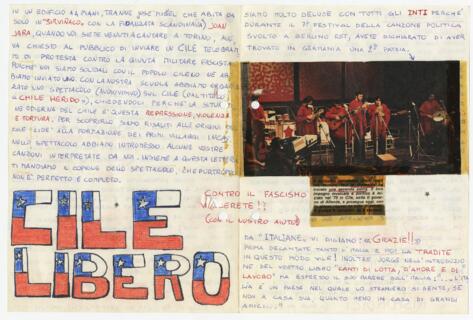 IN UN EDIFICIO A 4 PIANI, TRANNE JOSÉ MIGUEL CHE ABITA DA
SOLO IN "SIRVIÑACO", CON LA FIDANZATA SCANDINAVA) JOAN
JARA, QUANDO VOI SIETE VENUTI A CANTARE A TORINO,
VA CHIESTO AL PUBBLICO DI INVIARE IN CILE TELEGRAMMI
DI PROTESTA CONTRO LA GIUNTA MILITARE FASCISTA.
POICHÉ NOI SIAMO SOLIDALI CON IL POPOLO CILENO NE AB-
BIAMO INVIATO UNO. CON LA NOSTRA SCUOLA ABBIAMO ORGANIZ-
ZATO UNO SPETTACOLO (NUOVISSIMO) SUL CILE (DAL TITOLO:
"CHILE HERIDO"), CHIEDENDOCI PERCHÉ LA SITUAZIO-
NE ODIERNA DEL CILE È QUESTA REPRESSIONE, VIOLENZA
E TORTURA. PER SCOPRIRLO SIAMO RISALITI ALLE ORIGINI
ALLA FORMAZIONE DEI PRIMI VILLAGGI INCAS.
NELLO SPETTACOLO ABBIAMO INTROMESSO ALCUNE VOSTRE
CANZONI INTERPRETATE DA NOI. INSIEME A QUESTA LETTERA
TI MANDIAMO IL COPIONE DELLO SPETTACOLO, CHE PURTROPPO
NON È PERFETTO E COMPLETO.
CILE
LIBERO
CONTRO IL FASCISMO
VINCERETE!!
(CON IL NOSTRO AIUTO)
SIAMO MOLTO DELUSE CON TUTTI GLI INTI PERCHÉ
DURANTE IL 7° FESTIVAL DELLA CANZONE POLITICA
SVOLTO A BERLINO EST, AVETE DICHIARATO DI AVER
TROVATO IN GERMANIA UNA 2ª PATRIA.
DA "ITALIANE" VI DICIAMO: «GRAZIE!!»
PRIMA DECANTATE TANTO L'ITALIA E POI LA TRADITE
IN QUESTO MODO VILE! INOLTRE JORGE NELL'INTRODUZIO-
NE DEL VOSTRO LIBRO "CANTI DI LOTTA, D'AMORE E DI
LAVORO" HA ESPRESSO IL SUO PARERE SULL'ITALIA: «...L'ITA-
LIA È UN PAESE NEL QUALE LO STRANIERO SI SENTE, SE
NON A CASA SUA QUANTO MENO IN CASA DI GRANDI
AMICI...»!